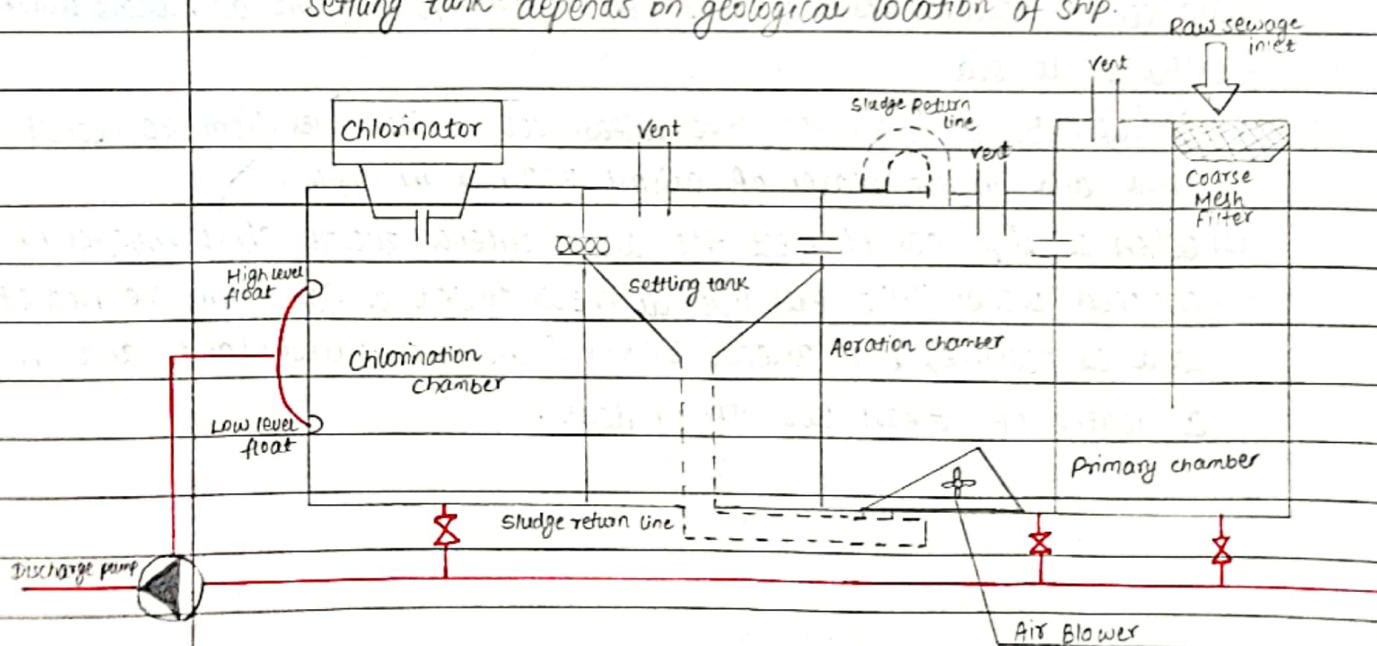 settling tank depends on geological location of ship.
Raw sewage
inlet
Vent
Sludge Return
line
Chlorinator
Vent
Vent
Coarse
Mesh
Filter
High level
float
Settling tank
Aeration chamber
Chlorination
chamber
Low level
float
Primary chamber
Sludge return line
Discharge pump
Air Blower